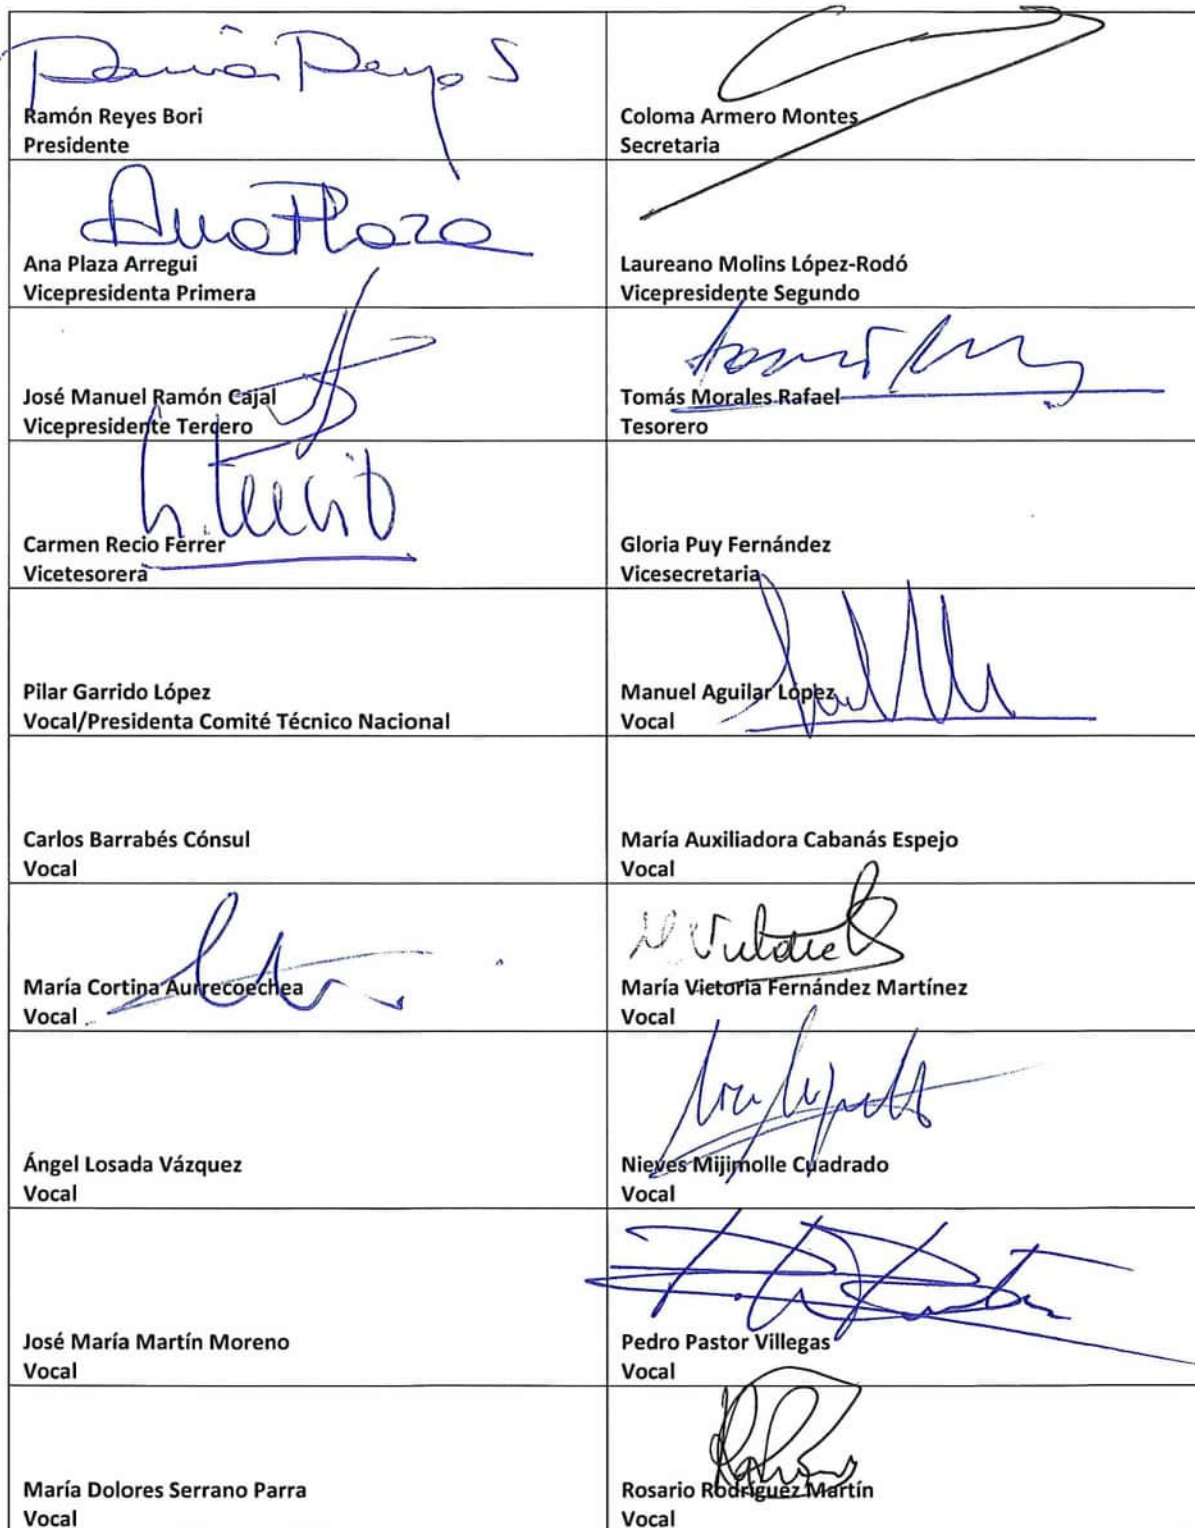 Ramón Reyes Bori
Presidente
Coloma Armero Montes
Secretaria
Ana Plaza
Ana Plaza Arregui
Vicepresidenta Primera
Laureano Molins López-Rodó
Vicepresidente Segundo
José Manuel Ramón Cajal
Vicepresidente Tercero
Tomás Morales Rafael
Tesorero
Carmen Recio Ferrer
Vicetesorera
Gloria Puy Fernández
Vicesecretaria
Pilar Garrido López
Vocal/Presidenta Comité Técnico Nacional
Manuel Aguilar López
Vocal
Carlos Barrabés Cónsul
Vocal
María Auxiliadora Cabanás Espejo
Vocal
María Cortina Aurrecoechea
Vocal
María Victoria Fernández Martínez
Vocal
Ángel Losada Vázquez
Vocal
Nieves Mijimolle Cuadrado
Vocal
José María Martín Moreno
Vocal
Pedro Pastor Villegas
Vocal
María Dolores Serrano Parra
Vocal
Rosario Rodríguez Martín
Vocal